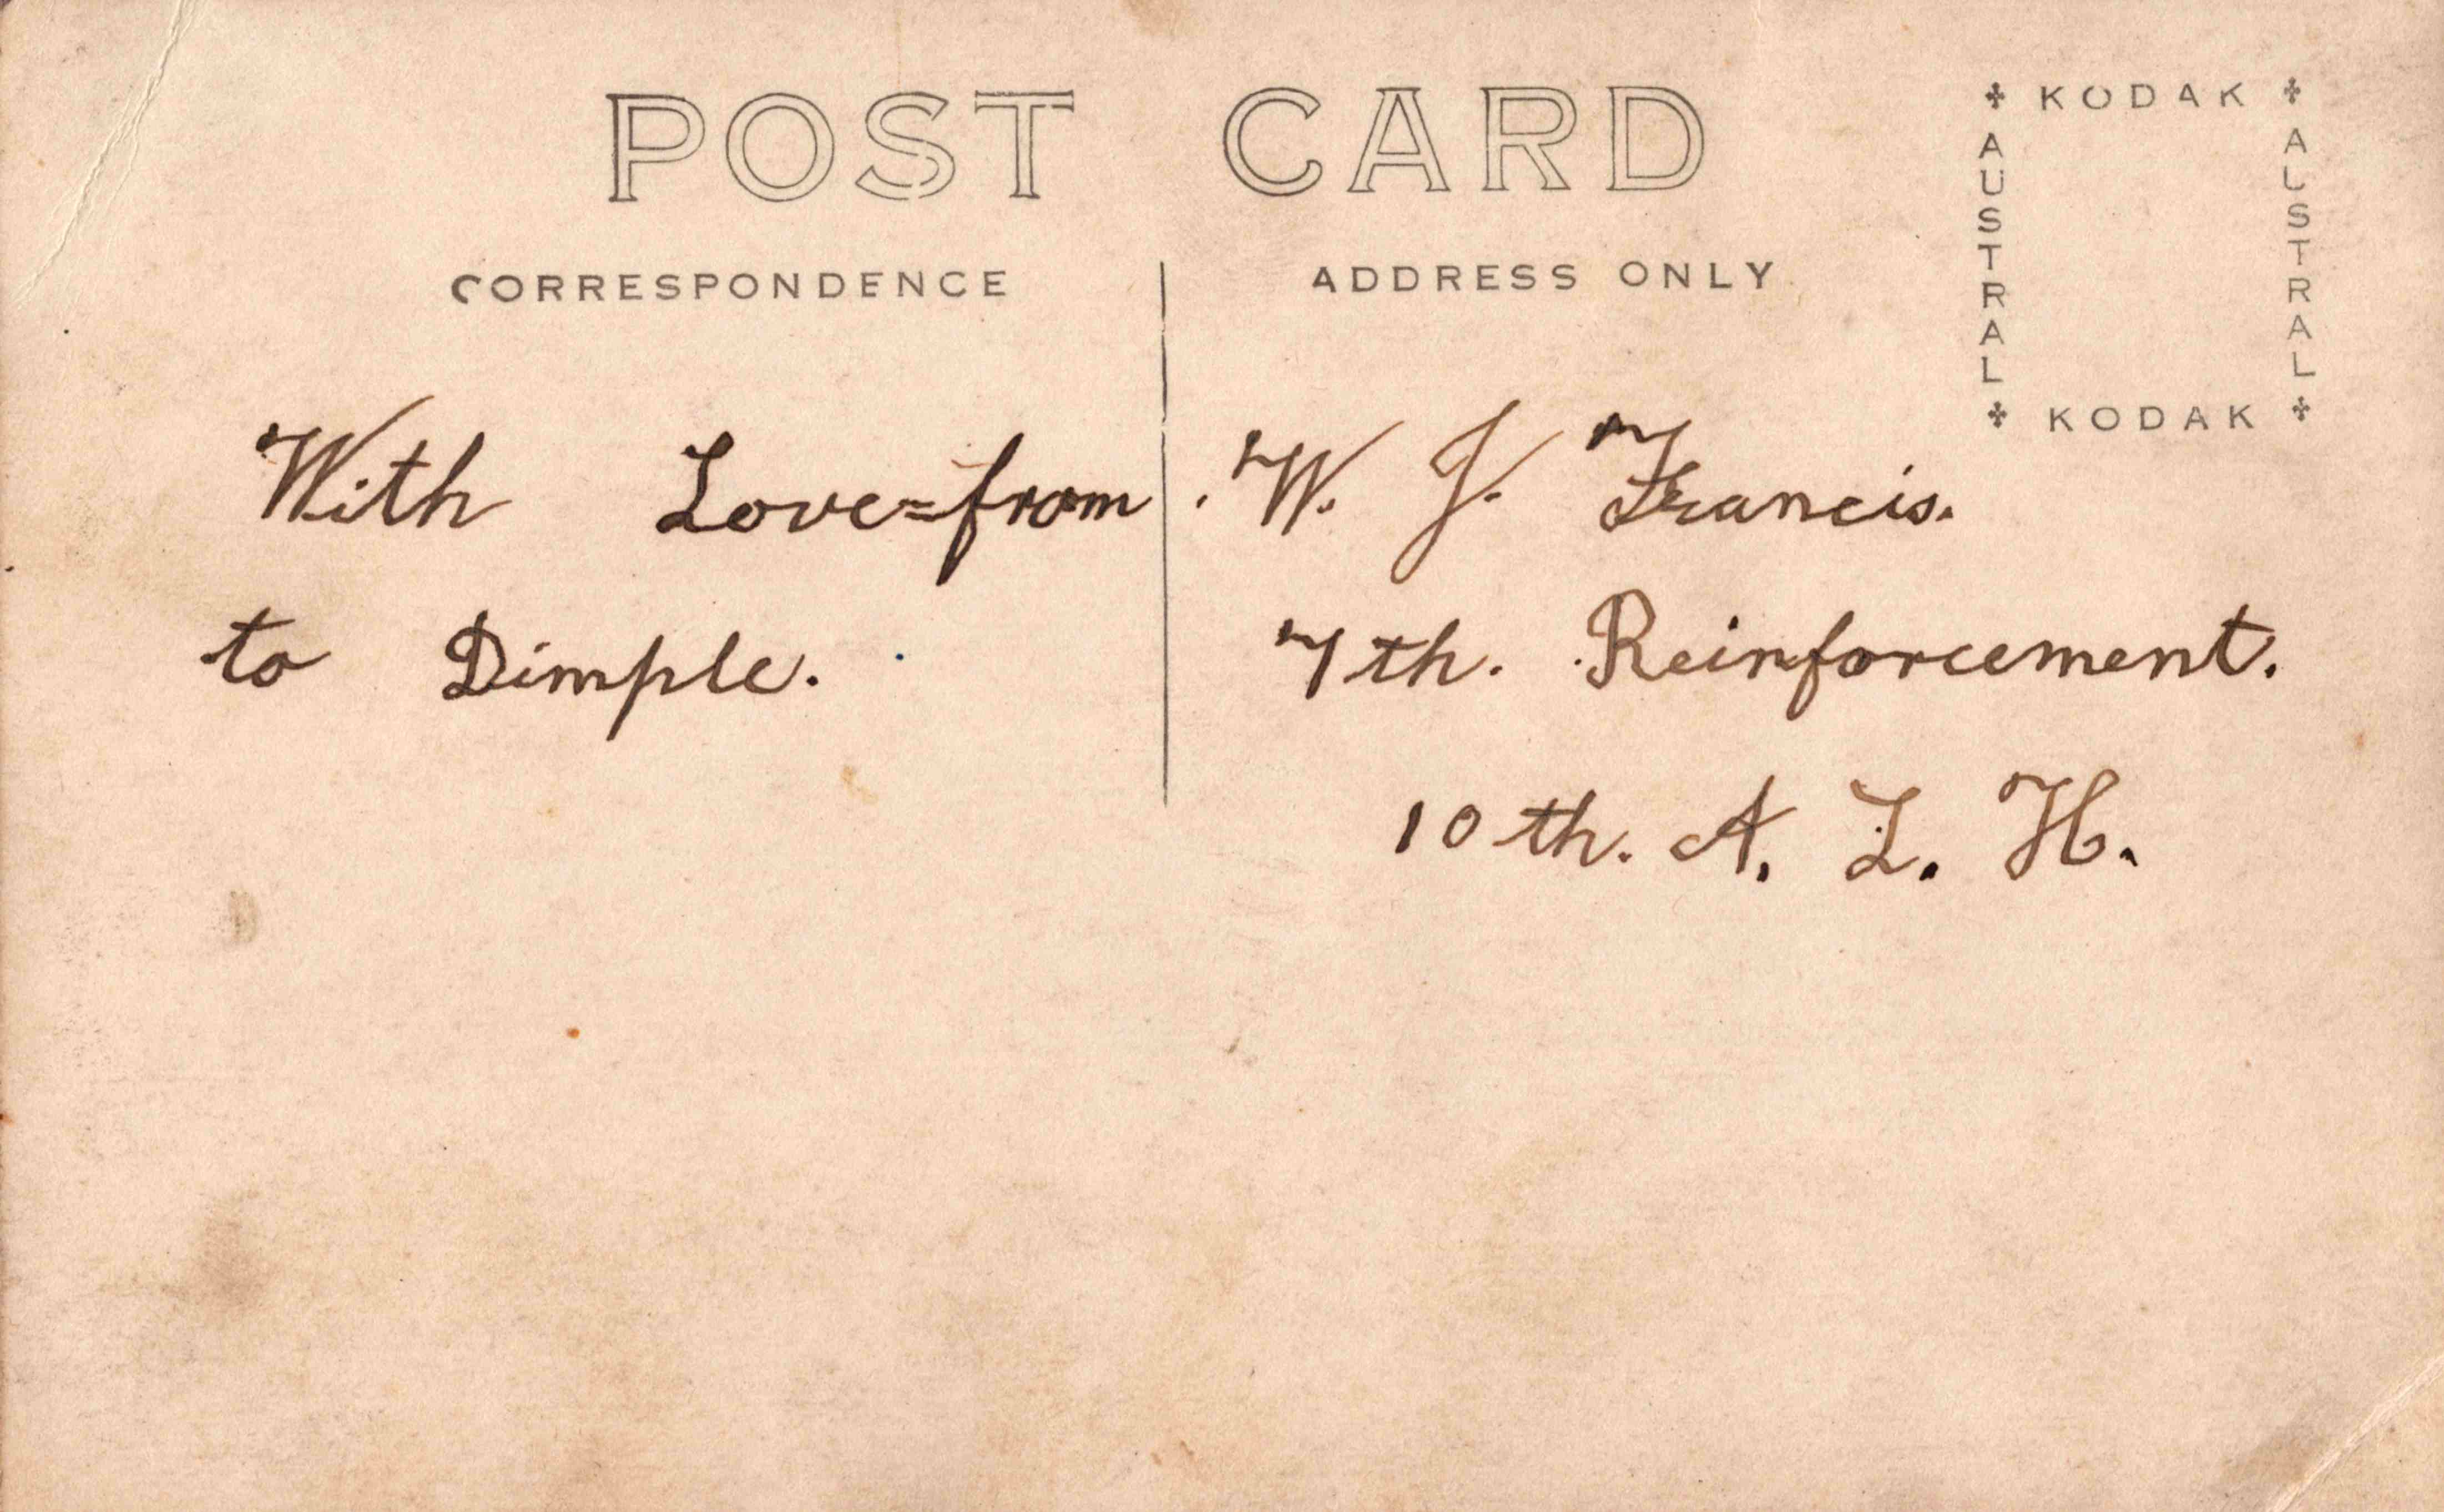 POST CARD
CORRESPONDENCE
ADDRESS ONLY
KODAK
AUSTRAL
AUSTRAL
KODAK
With Love=from
to Dimple.
W. J. Francis.
7th. Reinforcement.
10th. A. L. H.